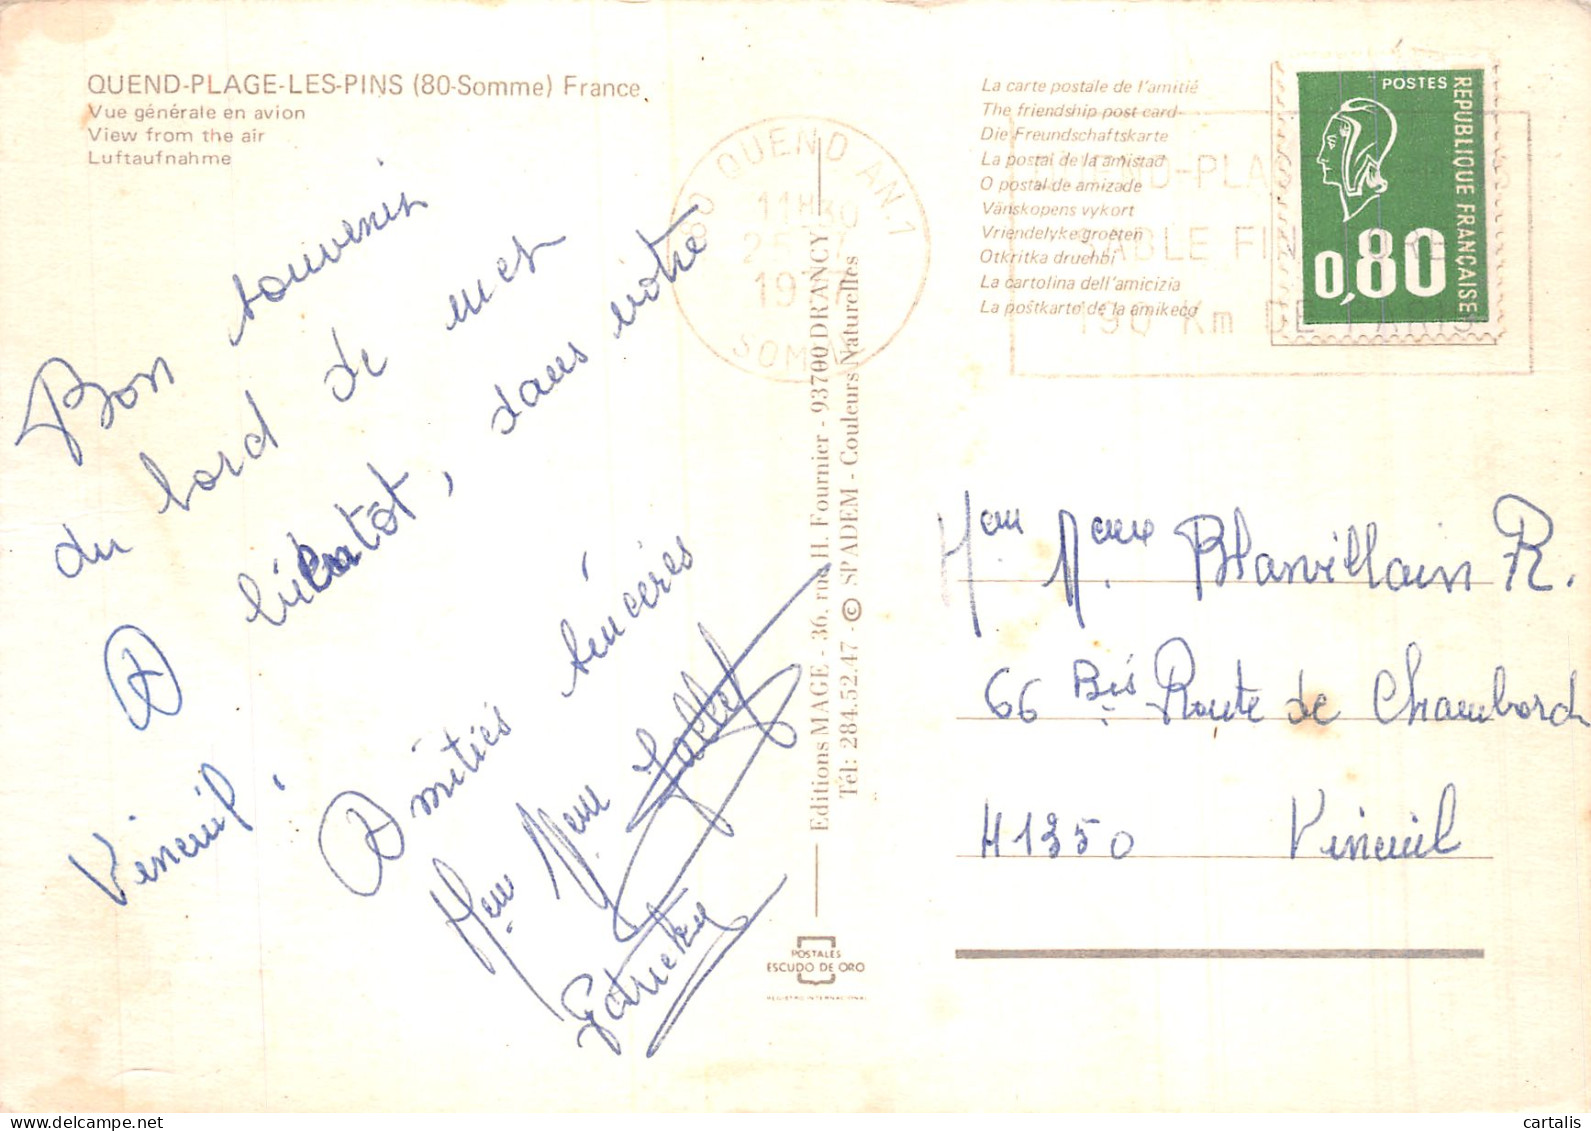 QUEND-PLAGE-LES-PINS (80-Somme) France
Vue générale en avion
View from the air
Luftaufnahme
Bon souvenir
du bord de mer
A bientôt, dans votre
Vineuil.
Amitiés sincères
Mem Mem Gallet
Patricky
80 QUEND AN.1
11H30
25-7
1977
SOMME
Editions MAGE - 36, rue H. Fournier - 93700 DRANCY
Tél: 284.52.47 - © SPADEM - Couleurs Naturelles
POSTALES
ESCUDO DE ORO
REGISTRO INTERNACIONAL
La carte postale de l'amitié
The friendship post card
Die Freundschaftskarte
La postal de la amistad
O postal de amizade
Vänskopens vykort
Vriendelyke groeten
Otkritka druehbi
La cartolina dell'amicizia
La poŝtkarto de la amikeco
QUEND-PLAG
SABLE FIN
190 Km DE PARIS
POSTES
REPUBLIQUE FRANÇAISE
0,80
Mem M. eux Blanvillain R.
66 Bis Route de Chambord
41350 Vineuil